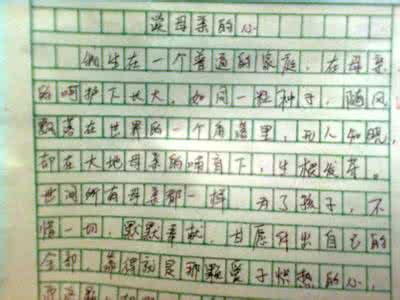 母亲的心
我生在一个普通的家庭，在母亲
的呵护下长大，如同一粒种子，随风
飘落在世界的一个角落里，无人知晓，
却在大地母亲的哺育下，生根发芽。
世间所有母亲都一样 为了孩子，不
惜一切，默默奉献，甘愿付出自己的
全部，是那颗爱子炽热的心，